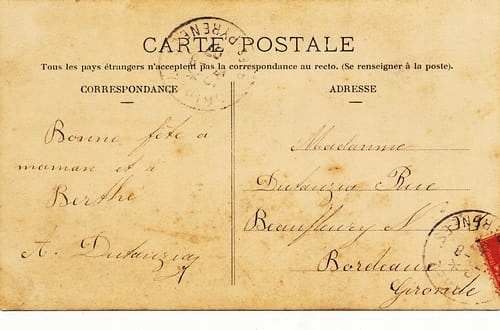 CARTE POSTALE
Tous les pays étrangers n'acceptent pas la correspondance au recto. (Se renseigner à la poste).
CORRESPONDANCE
ADRESSE
Bonne fête à
maman et à
Berthe
A. Dutauzia
Madamme
Dutauzia Rue
Beaufleury N
Bordeaux
Gironde